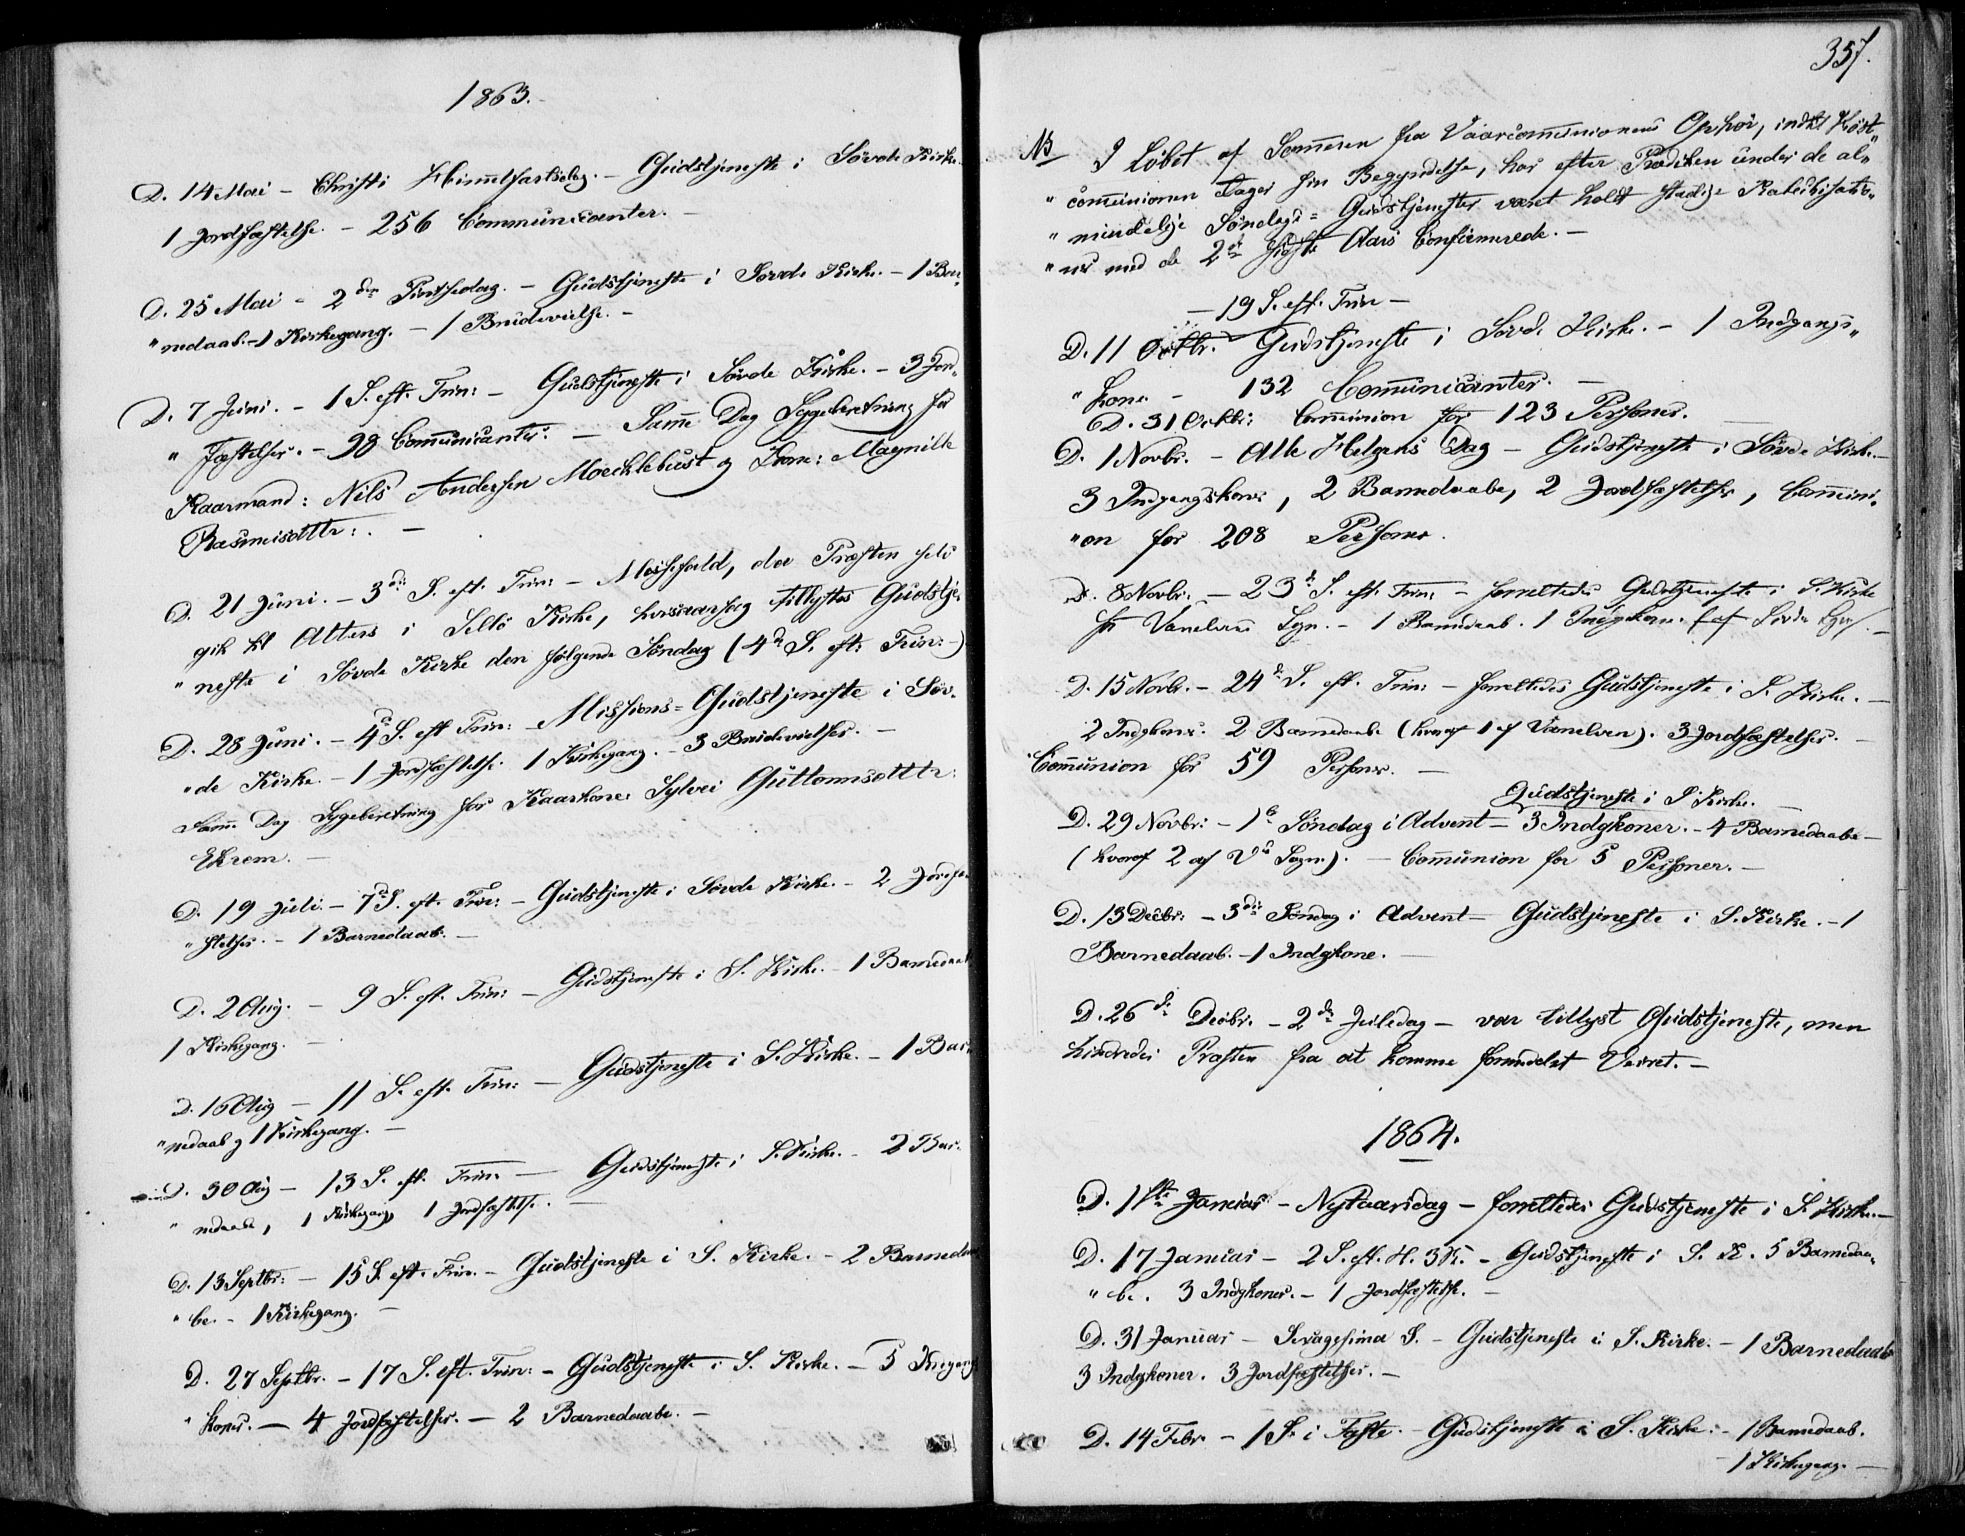 1863.
D. 14 Mai - Christi Himmelfartsdag. - Gudstjeneste i Sövde Kirke.
1 Jordfæstelse. - 256 Communicanter. -
D. 25 Mai - 2den Pintsedag. - Gudstjeneste i Sövde Kirke. - 1 Bar-
"nedaab. - 1 Kirkegang. - 1 Brudevielse. -
D. 7 Juni. - 1 S. eft. Trin: - Gudstjeneste i Sövde Kirke. - 3 Jord-
" fæstelser. - 98 Communicanter. - Samme Dag Sygeberetning for
Kaarmand: Nils Andersen Moecklebust og Kone: Magnilde
Rasmusdttr: . -
D. 21 Juni. - 3die S. eft. Trin: - Messefald, da Præsten selv
gik til Alters i Selló Kirke, hvorsaarsag tillystes Gudstje-
" neste i Sövde Kirke den følgende Söndag (4de S. eft. Trin: -)
D. 28 Juni. - 4de S. eft Trin: - Missions-Gudstjeneste i Söv-
"de Kirke. - 1 Jordfæstelse. 1 Kirkegang. - 3 Brudevielser. -
Samme Dag Sygeberetning for Kaarkone Sylvei Guttormsdttr:
Ekrem. -
D. 19 Juli. - 7de S. eft. Trin: - Gudstjeneste i Sövde Kirke. - 2 Jordfæ-
" stelser. - 1 Barnedaab. -
D. 2 Aug. - 9 S. eft. Trin: - Gudstjeneste i S. Kirke. - 1 Barnedaab
1 Kirkegang. -
D. 16 Aug - 11 S. eft. Trin: - Gudstjeneste i S. Kirke. - 1 Bar-
"nedaab og 1 Kirkegang. -
D. 30 Aug - 13 S. eft. Trin: - Gudstjeneste i S. Kirke. - 2 Bar-
" nedaabe, 1 Kirkegang, 1 Jordfæstelse. -
D. 13 Septbr: - 15 S. eft. Trin. - Gudstjeneste i S. Kirke. - 2 Barnedaa-
" be. - 1 Kirkegang. -
D. 27 Septbr. - 17 S. eft. Trin: - Gudstjeneste i S. Kirke. - 5 Indgangs-
" koner. - 4 Jordfæstelser. - 2 Barnedaabe. -
357.
NB I Löbet af Sommeren fra Vaarcommunionens Ophör, indtil Höst-
" communionen tager sin Begyndelse, har efter Prædiken under de al-
" mindelige Söndags-Gudstjenester været holdt stadige Katechisatio-
" ner med de 2de sidste Aars Confirmerede. -
- 19 S. eft. Trin -
D. 11 Octbr. Gudstjeneste i Sövde Kirke. - 1 Indgangs-
" kone - 132 Communicanter. -
D. 31 Octbr: Communion for 123 Personer.
D. 1 Novbr. - Alle Helgens Dag - Gudstjeneste i Sövde Kirke. -
3 Indgangskoner, 2 Barnedaabe, 2 Jordfæstelser, Communi-
"on for 208 Personer.
D. 8 Novbr. - 23de S. eft. Trin: - forrettedes Gudstjeneste i S. Kirke
for Vanelvens Sogn. - 1 Barnedaab. 1 Indgkone (af Sövde Sogn). -
D. 15 Novbr. - 24de S. eft. Trin: - forrettedes Gudstjeneste i S. Kirke. -
2 Indgkoner. 2 Barnedaabe (hvoraf 1 af Vanelven). 3 Jordfæstelser. -
Communion for 59 Personer. -
Gudstjeneste i S. Kirke. -
D. 29 Novbr: - 1ste Söndag i Advent - 3 Indgkoner. - 4 Barnedaabe -
(hvoraf 2 af Vs Sogn). - Communion for 5 Personer. -
D. 13 Decbr: - 3die Söndag i Advent - Gudstjeneste i S. Kirke. - 1
Barnedaab. - 1 Indgkone. -
D. 26de Decbr. - 2den Juledag - var tillyst Gudstjeneste, men
hindredes Præsten fra at komme formedelst Veiret. -
1864.
D. 1ste Januar - Nytaarsdag - forrettedes Gudstjeneste i S. Kirke. -
D. 17 Januar - 2 S. eft. H. 3 K. - Gudstjeneste i S. K. 5 Barnedaa-
" be. 3 Indgkoner. - 1 Jordfæstelse. -
D. 31 Januar - Sexagesima S. - Gudstjeneste i S. Kirke. - 1 Barnedaab
3 Indgkoner. 3 Jordfæstelser. -
D. 14 Febr - 1 S. i Faste. - Gudstjeneste i S. Kirke. - 1 Barnedaab.
- 1 Kirkegang. -